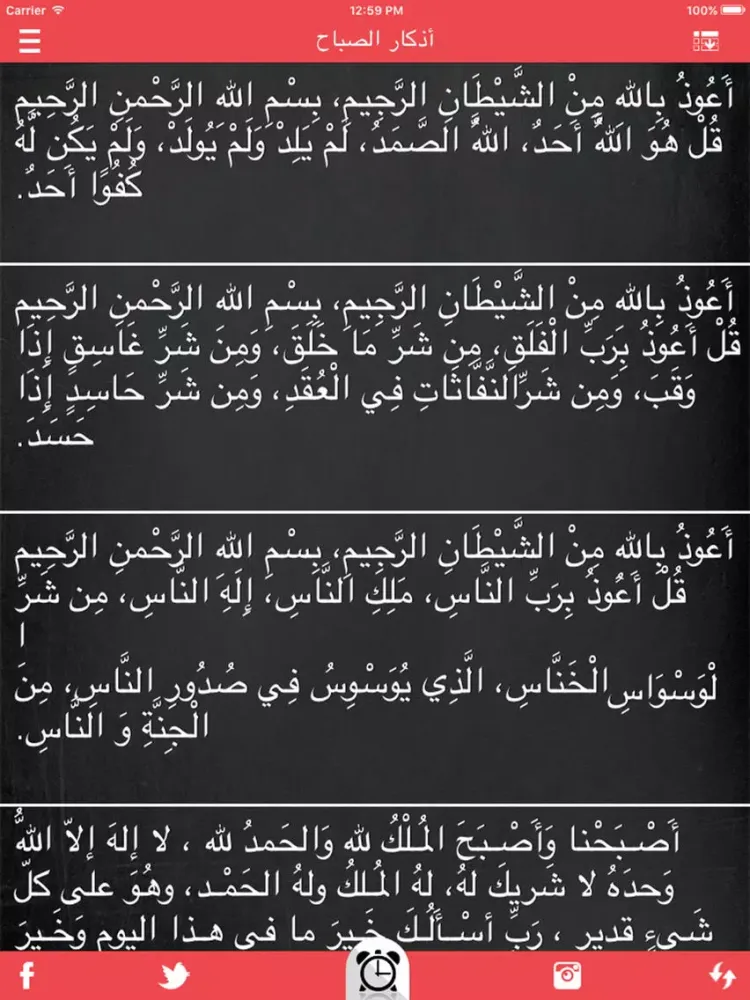 Carrier 12:59 PM 100%
أذكار الصباح
أَعُوذُ بِالله مِنْ الشَّيْطَانِ الرَّجِيمِ، بِسْمِ الله الرَّحْمنِ الرَّحِيمِ
قُلْ هُوَ اللهُ أَحَدٌ، اللهُ الصَّمَدُ، لَمْ يَلِدْ وَلَمْ يُولَدْ، وَلَمْ يَكُن لَّهُ
كُفُوًا أَحَدٌ.
أَعُوذُ بِالله مِنْ الشَّيْطَانِ الرَّجِيمِ، بِسْمِ الله الرَّحْمنِ الرَّحِيمِ
قُلْ أَعُوذُ بِرَبِّ الْفَلَقِ، مِن شَرِّ مَا خَلَقَ، وَمِنَ شَرِّ غَاسِقٍ إِذَا
وَقَبَ، وَمِن شَرِّالنَّفَّاثَاتِ فِي الْعُقَدِ، وَمِن شَرِّ حَاسِدٍ إِذَا
حَسَدَ.
أَعُوذُ بِالله مِنْ الشَّيْطَانِ الرَّجِيمِ، بِسْمِ الله الرَّحْمنِ الرَّحِيمِ
قُلْ أَعُوذُ بِرَبِّ النَّاسِ، مَلِكِ النَّاسِ، إِلَهَِ النَّاسِ، مِن شَرِّ
ا
لْوَسْوَاسِ الْخَنَّاسِ، الَّذِي يُوَسْوِسُ فِي صُدُورِ النَّاسِ، مِنَ
الْجِنَّةِ وَ النَّاسِ.
أَصْبَحْنا وَأَصْبَحَ المُلْكُ لله وَالحَمدُ لله ، لا إلهَ إلاّ اللهُ
وَحدَهُ لا شَريكَ لهُ، لهُ المُلكُ ولهُ الحَمْد، وهُوَ على كلّ
شَيءٍ قدير ، رَبِّ أسْألُكَ خَيرَ ما في هذا اليوم وَخَيرَ